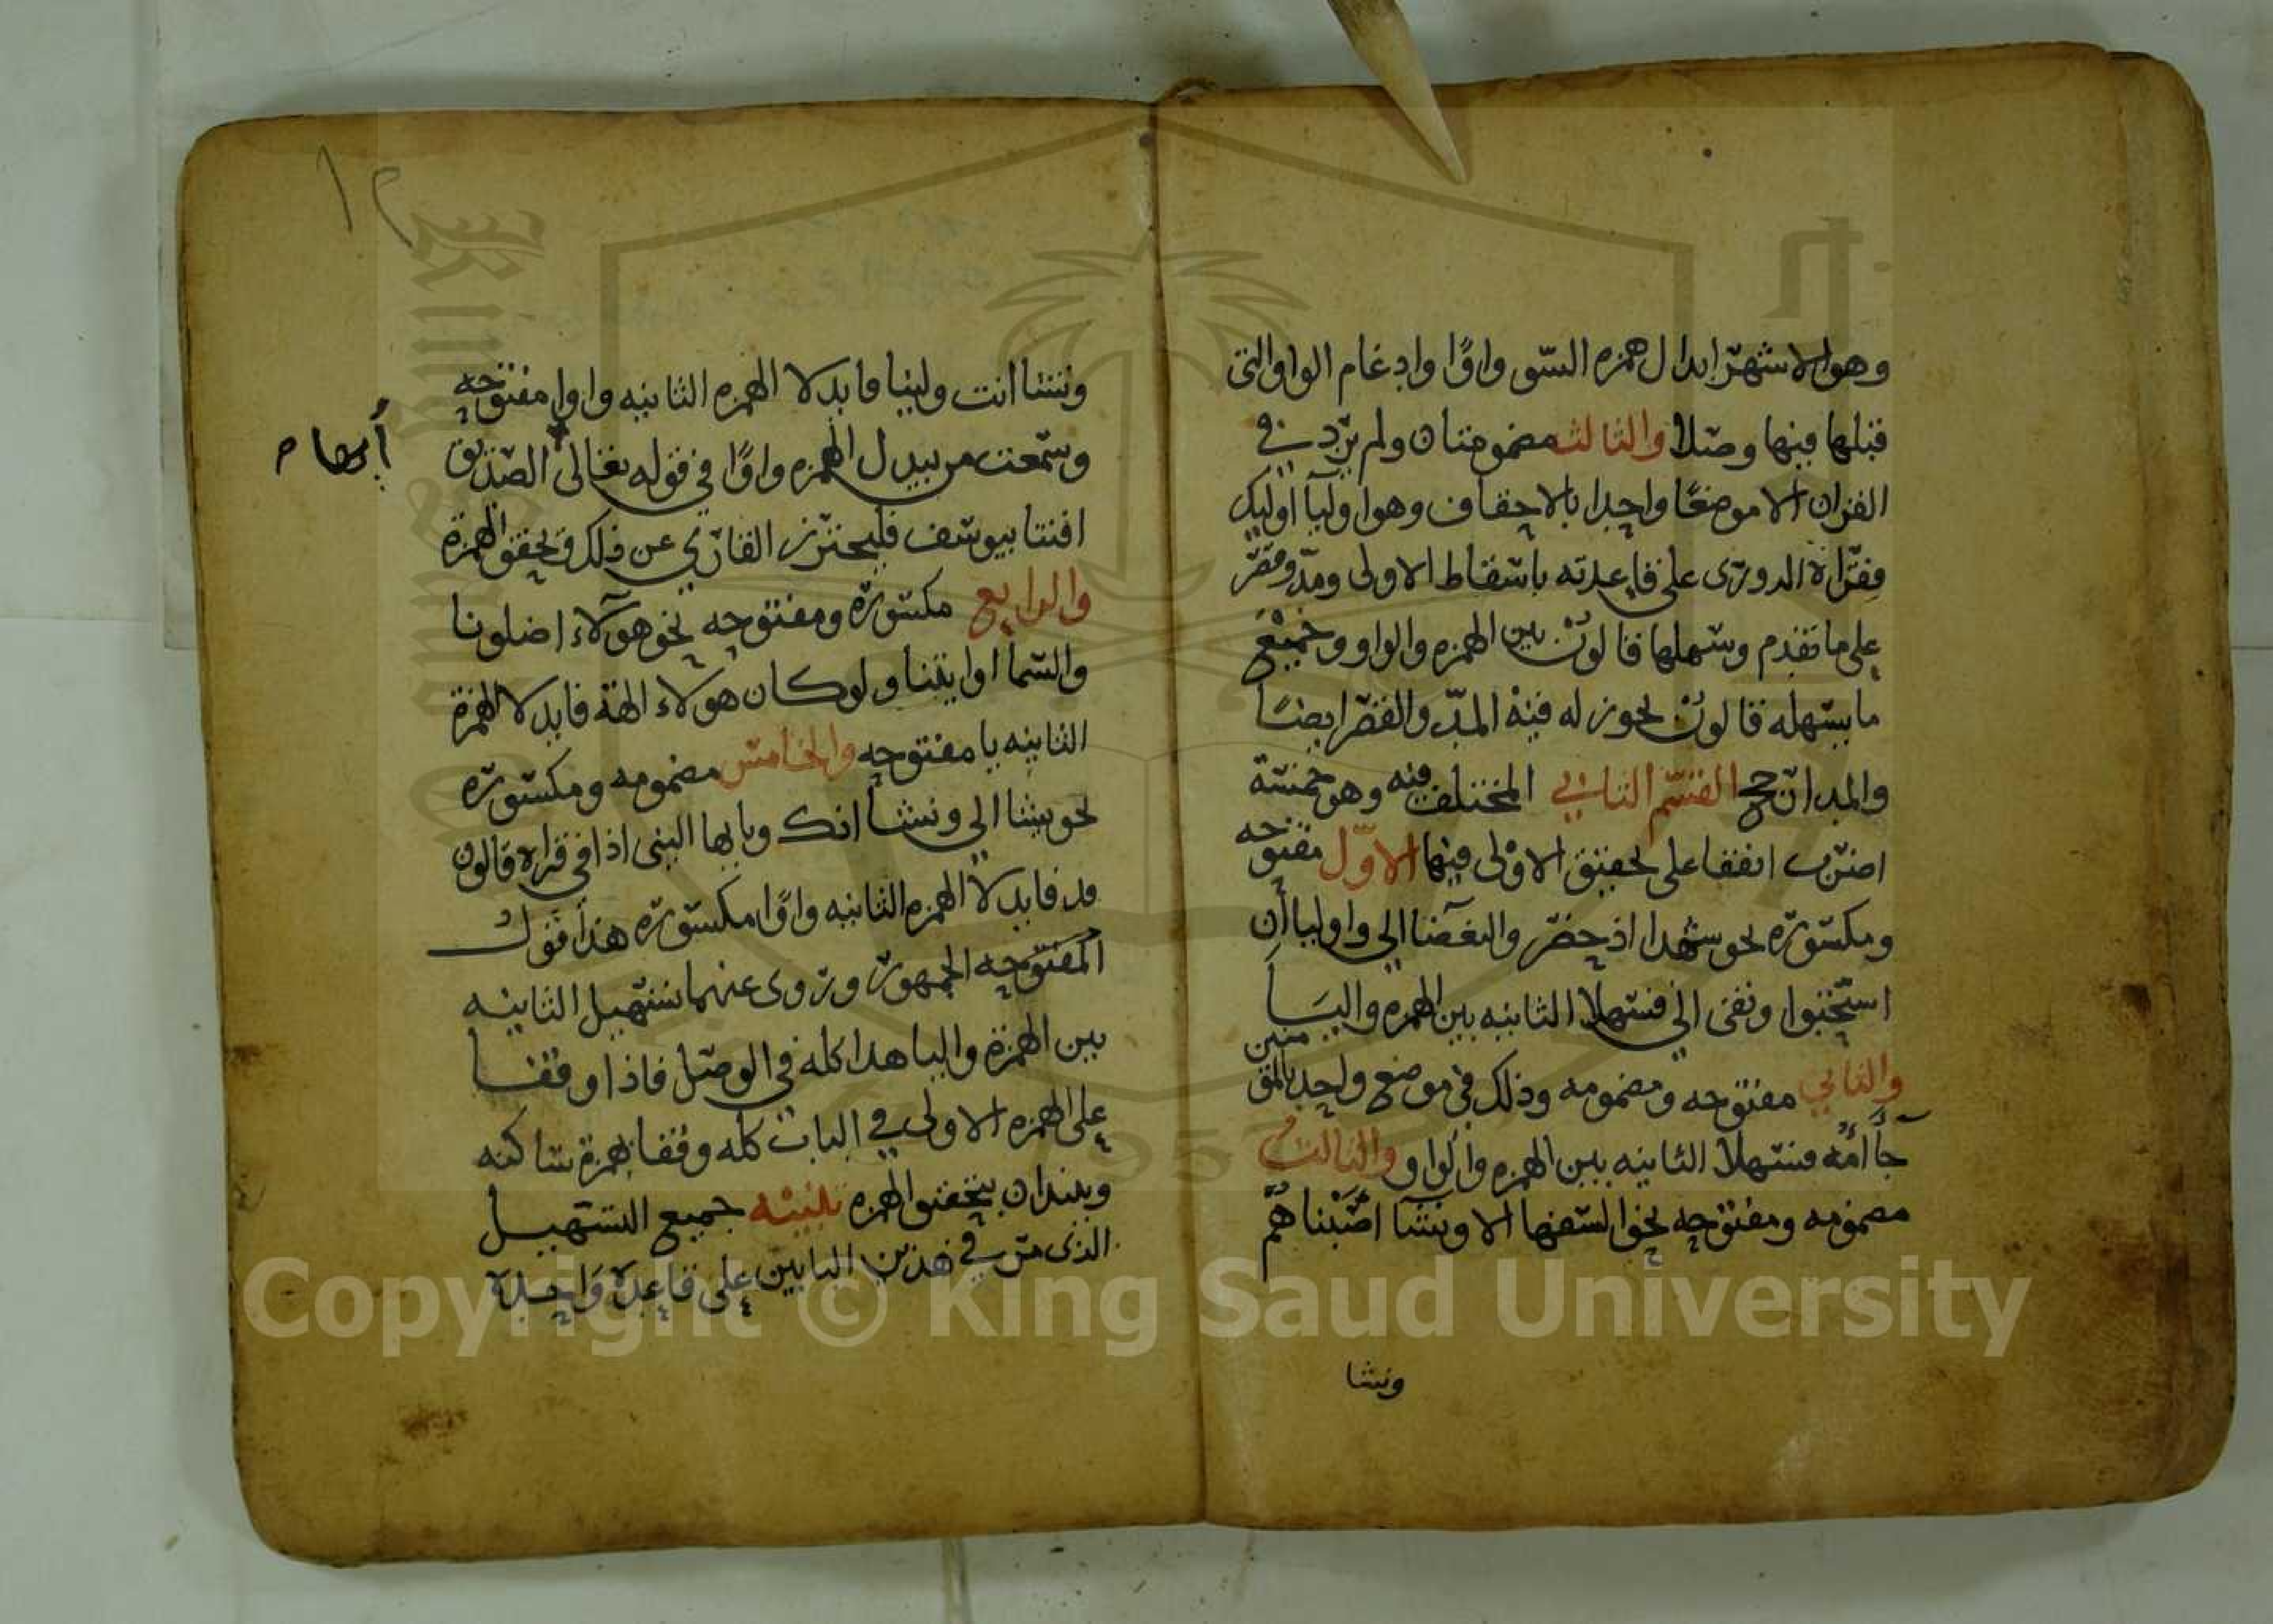 وهو الاشهر ابدال همزه السّو واوًا وادغام الواو التى
قبلها فيها وصلا والثالث مضمومتان ولم يرد في
القران الا موضعًا واحدا بالاحقاف وهو اوليآ اوليك
فقراة الدورى على قاعدته باسقاط الاولى ومد وقصر
على ما تقدم وسهلها قالون بين الهمزه والواو وجميع
ما يسهله قالون يجوز له فيه المدّ والقصر ايضًا
والمد ارجح القسم الثاني المختلف فيه وهو خمسة
اضرب اتفقا على تحقيق الاولى فيها الاوّل مفتوحه
ومكسوره نحو شهدا اذ حضر والبغضا الى واوليا أن
استحبوا وتفى الى فسهلا الثانيه بين الهمزه واليا
والثاني مفتوحه ومضمومه وذلك في موضع واحد بالمؤ
منين
جآ أمّه فسهلا الثانيه بين الهمزه والواو والثالث
مضمومه ومفتوحه نحو السفها الا ونشآ اصبناهم
ونشا
ونشا انت وليا فابدلا الهمزه الثانيه واوا مفتوحه
وسمعت من يبدل الهمزه واوًا في قوله تعالى الصديق
افتنا بيوسف فليحترز القاري عن ذلك ويحقق الهمزة
والرابع مكسوره ومفتوحه نحو هولآء اضلونا
والسما او ايتنا ولو كان هولاء الهة فابدلا الهمزة
الثانيه يا مفتوحه والخامس مضمومه ومكسوره
نحو يشا الى ونشأ انك وبابها النبى اذا في قراه قالون
قد فابدلا الهمزه الثانيه واوًا مكسوره هذا قول
المفتوحه الجمهور وروى عنهما تسهيل الثانيه
بين الهمزة واليا هذا كله فى الوصل فاذا وقفا
على الهمزه الاولى في الباب كله وقفا بهمزة ساكنه
ويبتدان بتحقيق الهمزه تنبيه جميع التسهيل
الذى مر في هذين البابين على قاعدة واحدة